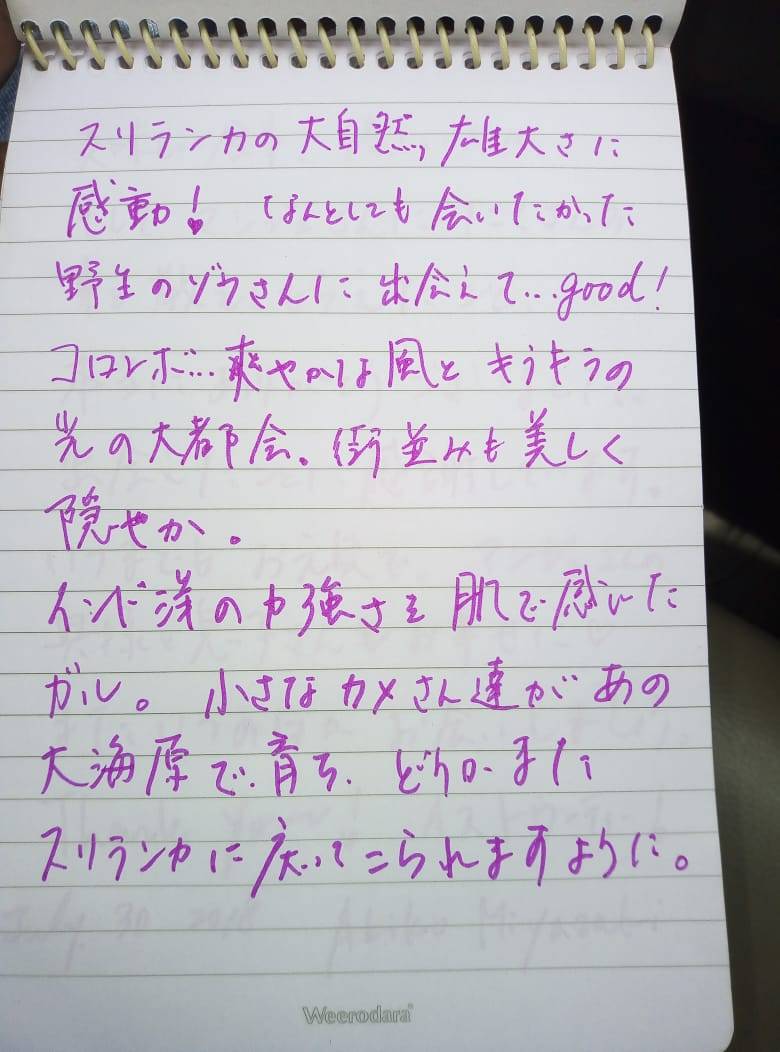 スリランカの大自然、雄大さに
感動! なんとしても会いたかった
野生のゾウさんに出会えて...good!
コロンボ...爽やかな風とキラキラの
光の大都会。街並みも美しく
穏やか。
インド洋の力強さを肌で感じた
ガル。 小さなカメさん達があの
大海原で育ち、どうか、また
スリランカに戻ってこられますように。
Weerodara